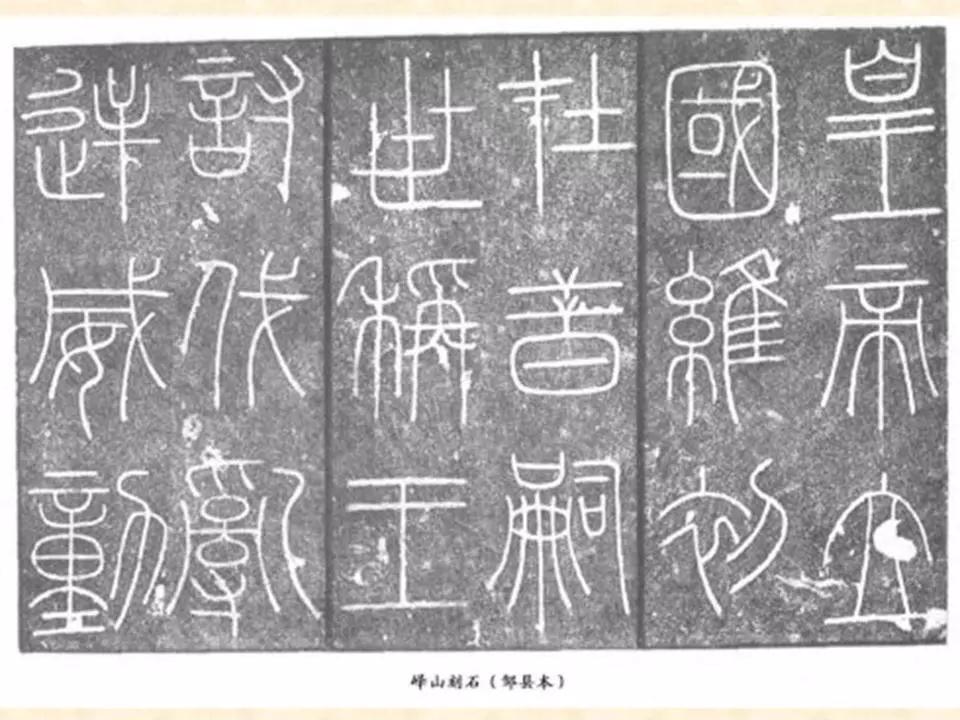 皇帝立
國維初
在昔嗣
世稱王
討伐亂
逆威動
峄山刻石（邹县本）